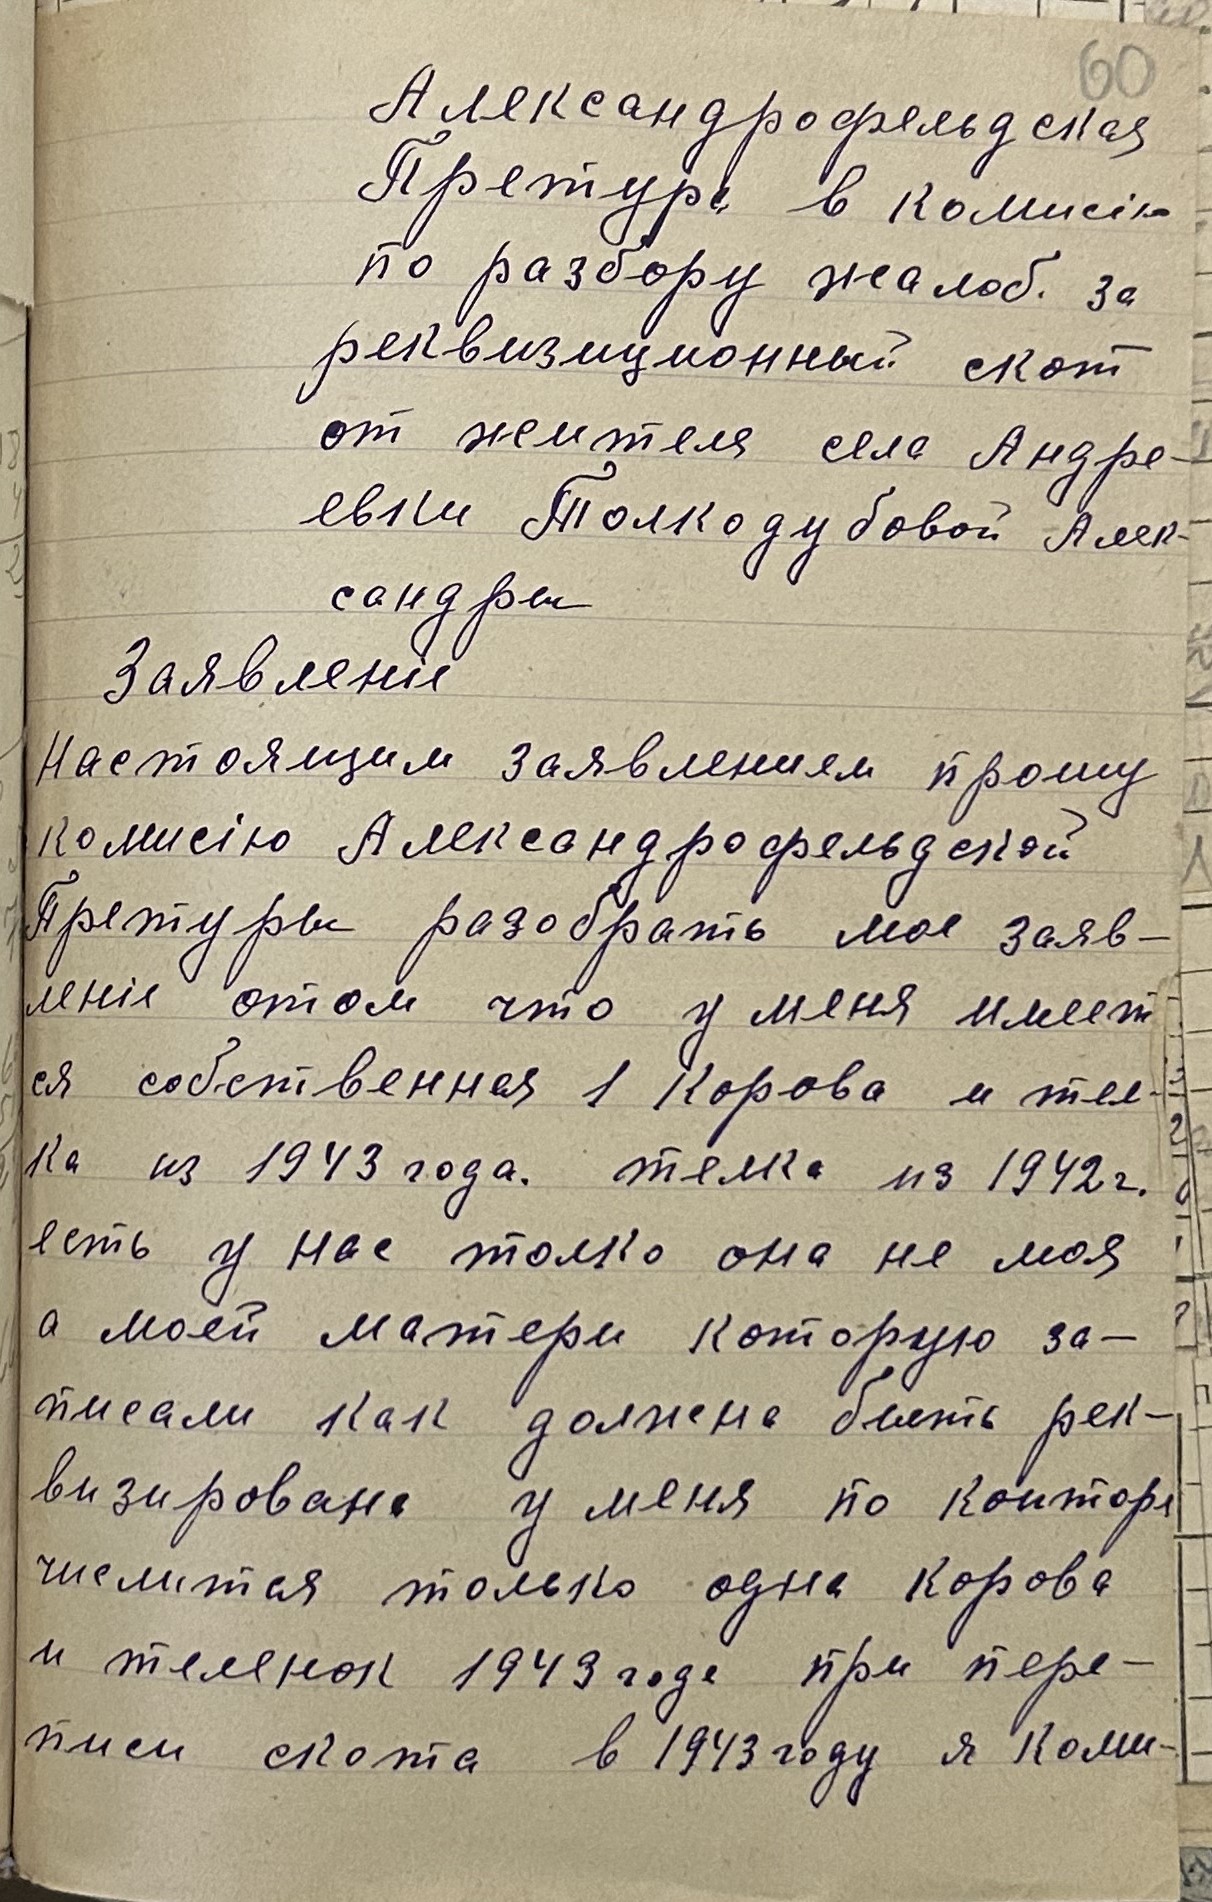 60
Александрофельдская
Претура в комисію
по разбору жалоб. за
реквизиционный скот
от жителя села Андре-
евки Толкодубовой Алек-
сандры
Заявленіе
Настоящим заявлением прошу
комисію Александрофельдской
Претуры разобрать мое заяв-
леніе отом что у меня имеет
ся собственная 1 корова и тел-
ка из 1943 года. телка из 1942 г.
есть у нас толко она не моя
а моей матери которую за-
писали как должна быть рек-
визирована у меня по конторе
числится только одна корова
и теленок 1943 года при пере-
писи скота в 1943 году я коми-